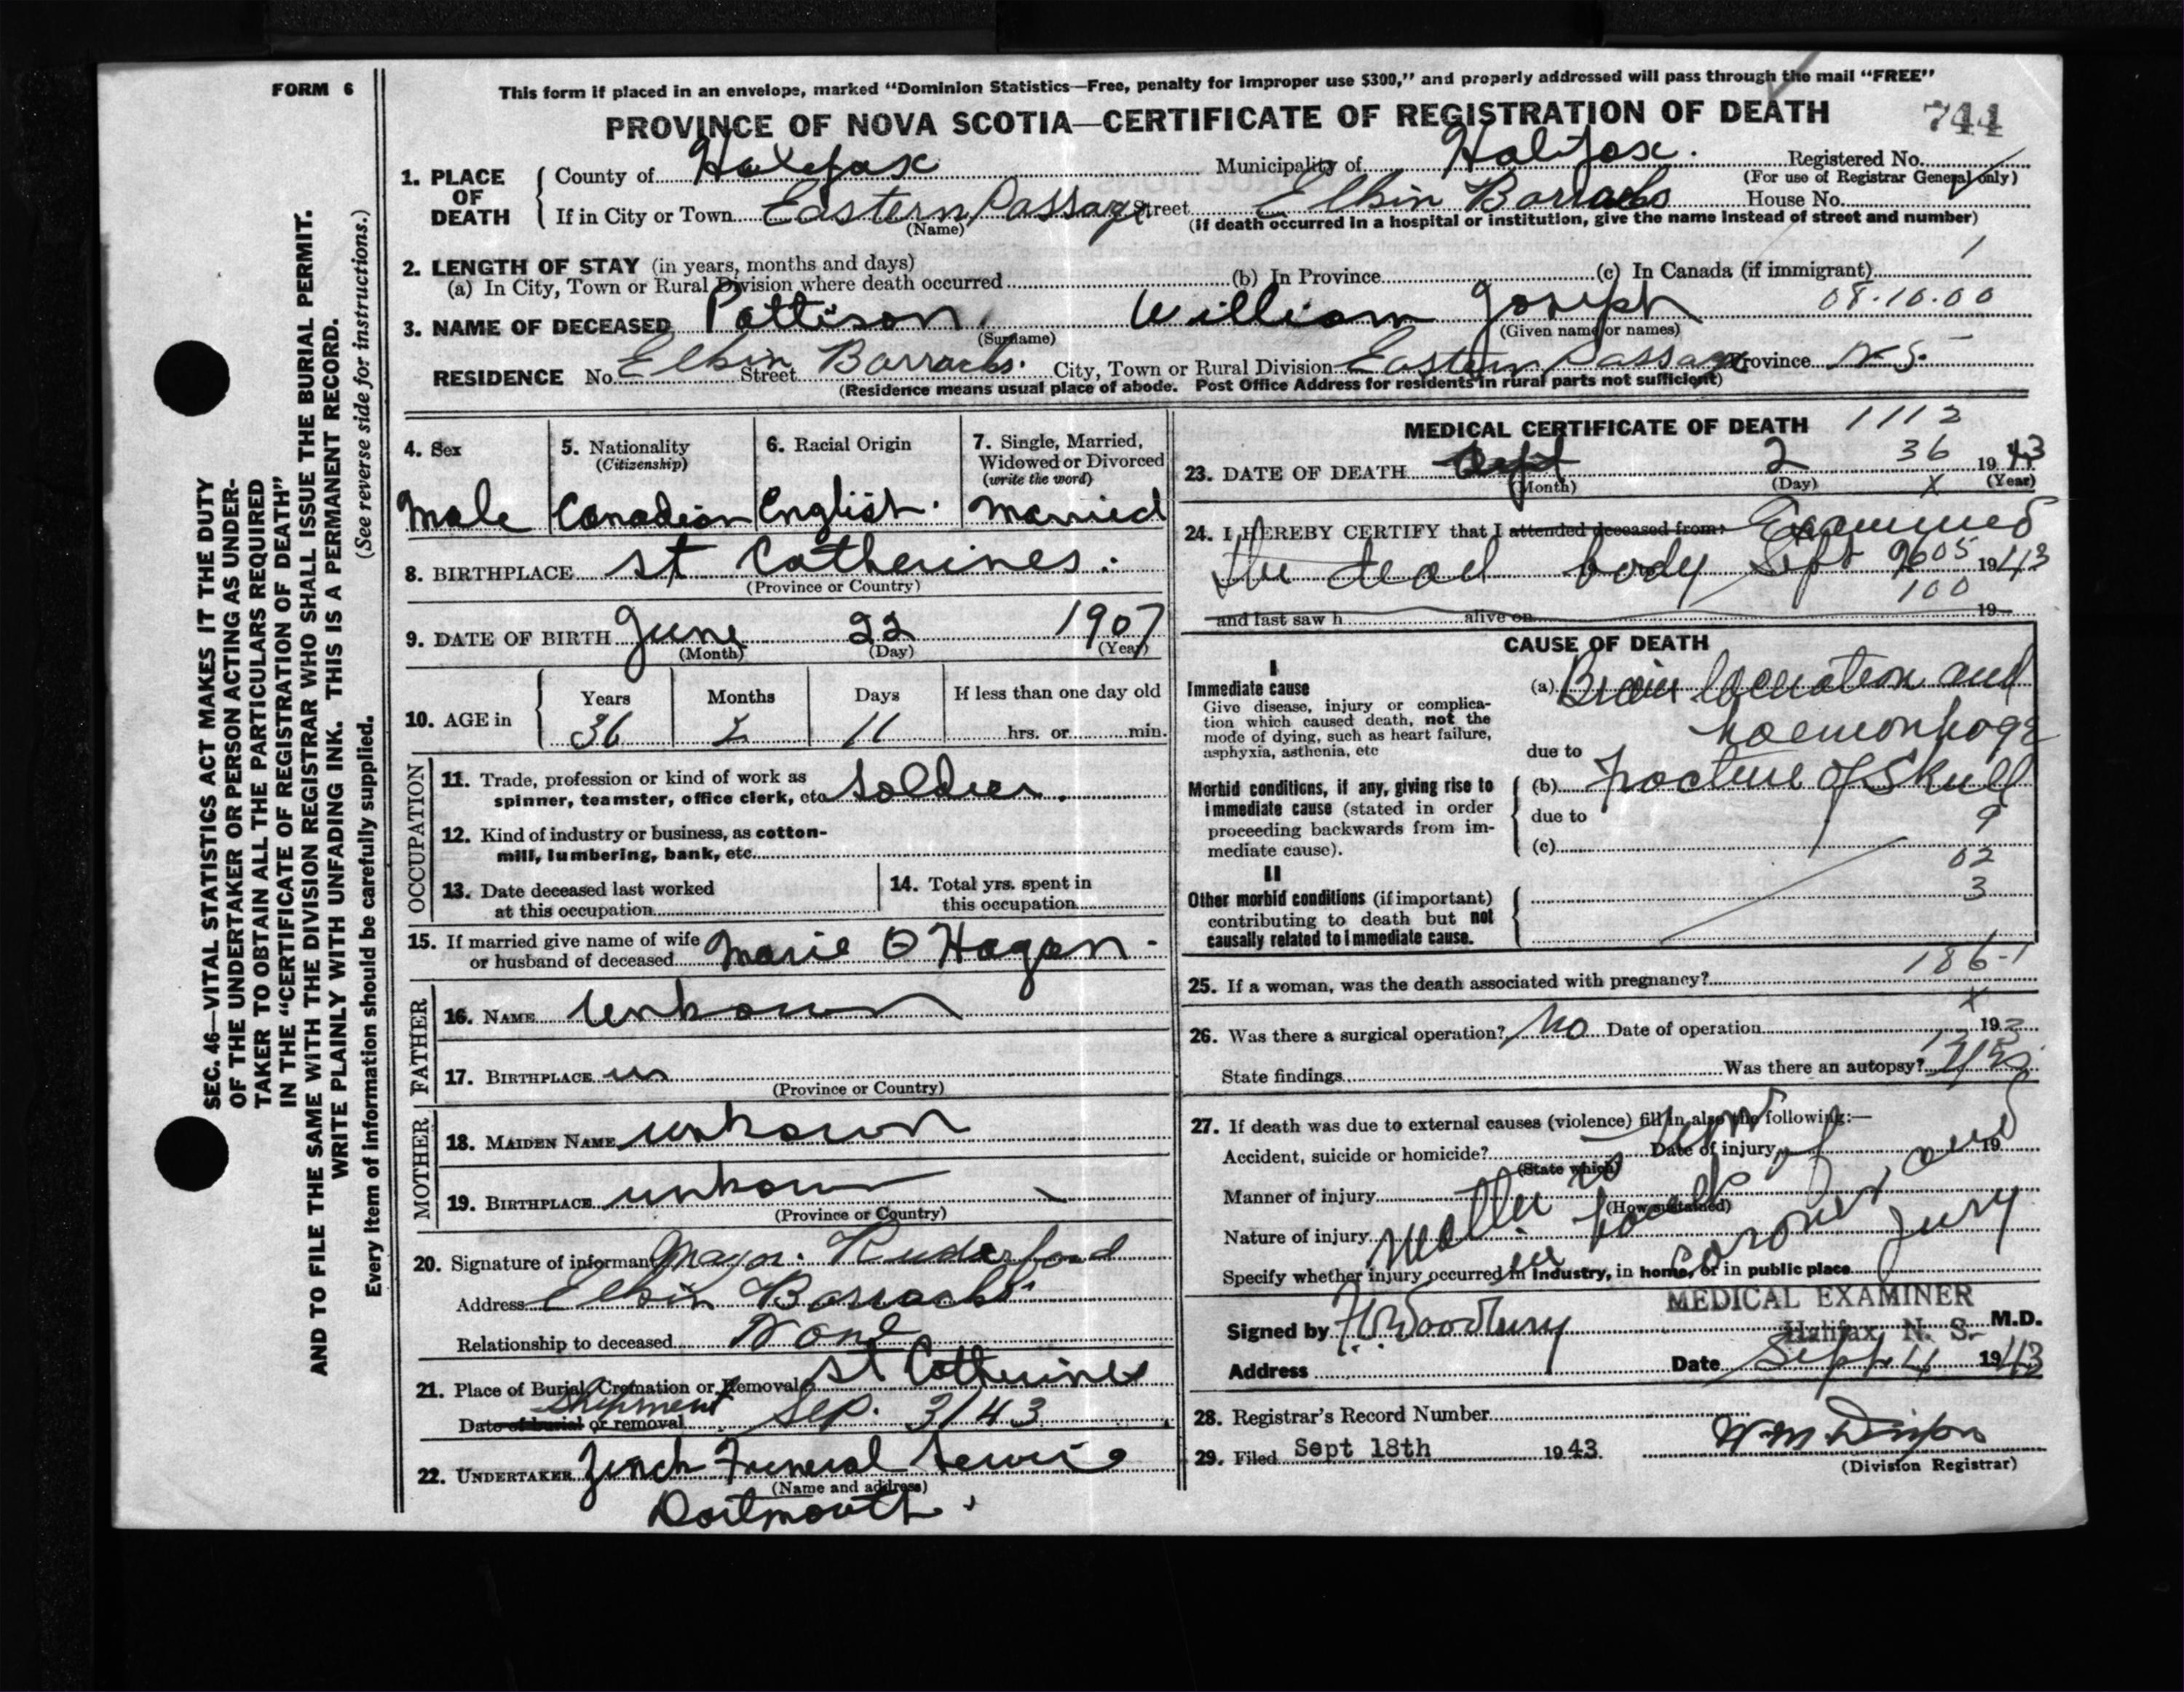 FORM 6
This form if placed in an envelope, marked "Dominion Statistics—Free, penalty for improper use $300," and properly addressed will pass through the mail "FREE"
PROVINCE OF NOVA SCOTIA—CERTIFICATE OF REGISTRATION OF DEATH
744
1. PLACE OF DEATH County of Halifax Municipality of Halifax. Registered No.
(For use of Registrar General only)
If in City or Town Eastern Passage Street Elkin Barracks House No.
(Name) (If death occurred in a hospital or institution, give the name instead of street and number)
2. LENGTH OF STAY (in years, months and days)
(a) In City, Town or Rural Division where death occurred (b) In Province (c) In Canada (if immigrant) 1
3. NAME OF DECEASED Pattison. William Joseph 08.10.00
(Surname) (Given name or names)
RESIDENCE No. Elkin Street Barracks. City, Town or Rural Division Eastern Passage Province N.S.
(Residence means usual place of abode. Post Office Address for residents in rural parts not sufficient)
4. Sex
Male
5. Nationality
(Citizenship)
Canadian
6. Racial Origin
English.
7. Single, Married,
Widowed or Divorced
(write the word)
Married
8. BIRTHPLACE St Catherines.
(Province or Country)
9. DATE OF BIRTH June 22 1907
(Month) (Day) (Year)
10. AGE in Years Months Days If less than one day old
36 2 11 hrs. or min.
OCCUPATION
11. Trade, profession or kind of work as
spinner, teamster, office clerk, etc Soldier.
12. Kind of industry or business, as cotton-
mill, lumbering, bank, etc.
13. Date deceased last worked
at this occupation
14. Total yrs. spent in
this occupation
15. If married give name of wife
or husband of deceased Marie O Hagan -
FATHER
16. NAME Unkown
17. BIRTHPLACE un
(Province or Country)
MOTHER
18. MAIDEN NAME unkown
19. BIRTHPLACE unkown
(Province or Country)
20. Signature of informant Major. Ruderford
Address Elkin Barracks
Relationship to deceased None
21. Place of Burial, Cremation or Removal St Catherines
shipment
Date of burial or removal Sep. 3/43
22. UNDERTAKER Zinck Funeral Service
(Name and address)
Dartmouth.
MEDICAL CERTIFICATE OF DEATH 1112
23. DATE OF DEATH Sept 2 36 1943
(Month) (Day) x (Year)
24. I HEREBY CERTIFY that I attended deceased from: Examined
the dead body Sept 9605 1943
100
and last saw h alive on 19
CAUSE OF DEATH
I
Immediate cause
Give disease, injury or complica-
tion which caused death, not the
mode of dying, such as heart failure,
asphyxia, asthenia, etc
(a) Brain laceration and
haemorrhage
due to
Morbid conditions, if any, giving rise to
immediate cause (stated in order
proceeding backwards from im-
mediate cause).
(b) Fracture of Skull
due to
9
(c)
02
II
Other morbid conditions (if important)
contributing to death but not
causally related to immediate cause.
3
186-1
25. If a woman, was the death associated with pregnancy?
x
26. Was there a surgical operation? No Date of operation 19
State findings Was there an autopsy? Yes
27. If death was due to external causes (violence) fill in also the following:—
Accident, suicide or homicide? Date of injury 19
(State which)
Manner of injury
(How sustained)
Nature of injury
Specify whether injury occurred in industry, in home, or in public place
Matter is
in hands of
coroner and
Jury
MEDICAL EXAMINER
Halifax, N. S.
Signed by F.V. Woodbury M.D.
Address Date Sept 4 1943
28. Registrar's Record Number
29. Filed Sept 18th 1943 W M Dixon
(Division Registrar)
SEC. 46—VITAL STATISTICS ACT MAKES IT THE DUTY
OF THE UNDERTAKER OR PERSON ACTING AS UNDER-
TAKER TO OBTAIN ALL THE PARTICULARS REQUIRED
IN THE "CERTIFICATE OF REGISTRATION OF DEATH"
AND TO FILE THE SAME WITH THE DIVISION REGISTRAR WHO SHALL ISSUE THE BURIAL PERMIT.
WRITE PLAINLY WITH UNFADING INK. THIS IS A PERMANENT RECORD.
(See reverse side for instructions.)
Every item of information should be carefully supplied.